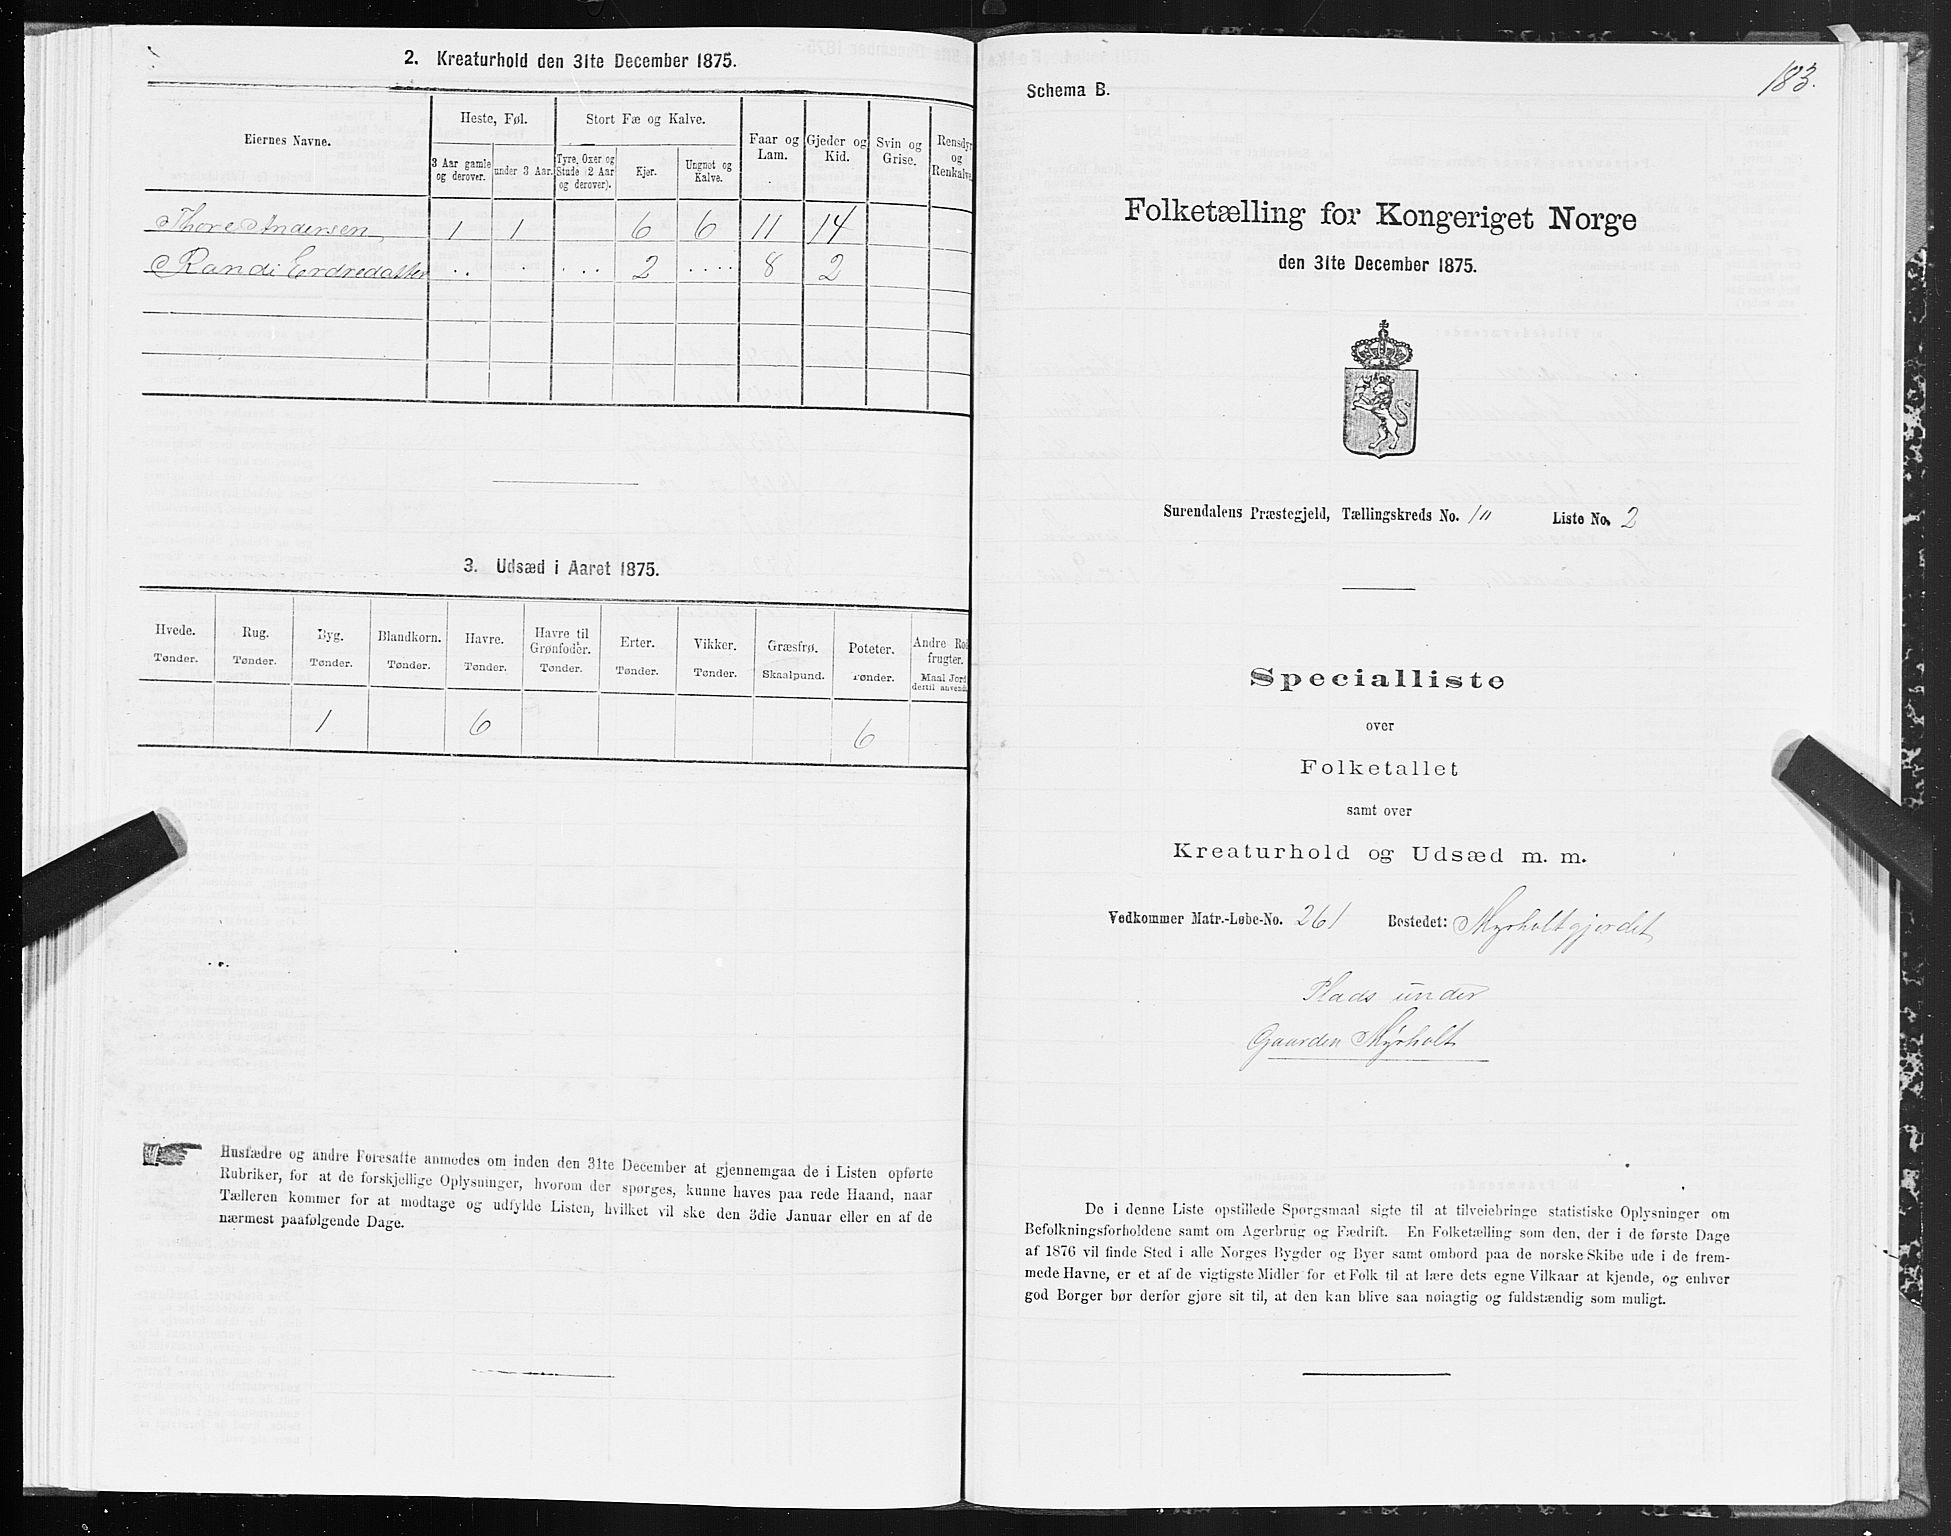 2. Kreaturhold den 31te December 1875.
Eiernes Navne.
Heste, Føl.
Stort Fæ og Kalve.
Faar og Lam.
Gjeder og Kid.
Svin og Grise.
Rensdyr og Renkalve.
3 Aar gamle og derover.
under 3 Aar.
Tyre, Oxer og Stude (2 Aar og derover).
Kjør.
Ungnøt og Kalve.
Thore Andersen 1 1 6 6 11 14
Randi Erdredatter .. . ... 2 .... 8 2
3. Udsæd i Aaret 1875.
Hvede. Rug. Byg. Blandkorn. Havre. Havre til Grønfoder. Erter. Vikker. Græsfrø. Poteter. Andre Rodfrugter.
Tønder. Tønder. Tønder. Tønder. Tønder. Tønder. Tønder. Tønder. Skaalpund. Tønder. Maal Jord dertil anvendt.
1 6 6
Husfædre og andre Foresatte anmodes om inden den 31te December at gjennemgaa de i Listen opførte
Rubriker, for at de forskjellige Oplysninger, hvorom der spørges, kunne haves paa rede Haand, naar
Tælleren kommer for at modtage og udfylde Listen, hvilket vil ske den 3die Januar eller en af de
nærmest paafølgende Dage.
183.
Schema B.
Folketælling for Kongeriget Norge
den 31te December 1875.
Surendalens Præstegjeld, Tællingskreds No. 10 Liste No. 2
Specialliste
over
Folketallet
samt over
Kreaturhold og Udsæd m. m.
Vedkommer Matr.-Løbe-No. 261 Bostedet: Myrholtgjerdet
Plads under
Gaarden Myrholt
De i denne Liste opstillede Spørgsmaal sigte til at tilveiebringe statistiske Oplysninger om
Befolkningsforholdene samt om Agerbrug og Fædrift. En Folketælling som den, der i de første Dage
af 1876 vil finde Sted i alle Norges Bygder og Byer samt ombord paa de norske Skibe ude i de frem-
mede Havne, er et af de vigtigste Midler for et Folk til at lære dets egne Vilkaar at kjende, og enhver
god Borger bør derfor gjøre sit til, at den kan blive saa nøiagtig og fuldstændig som muligt.